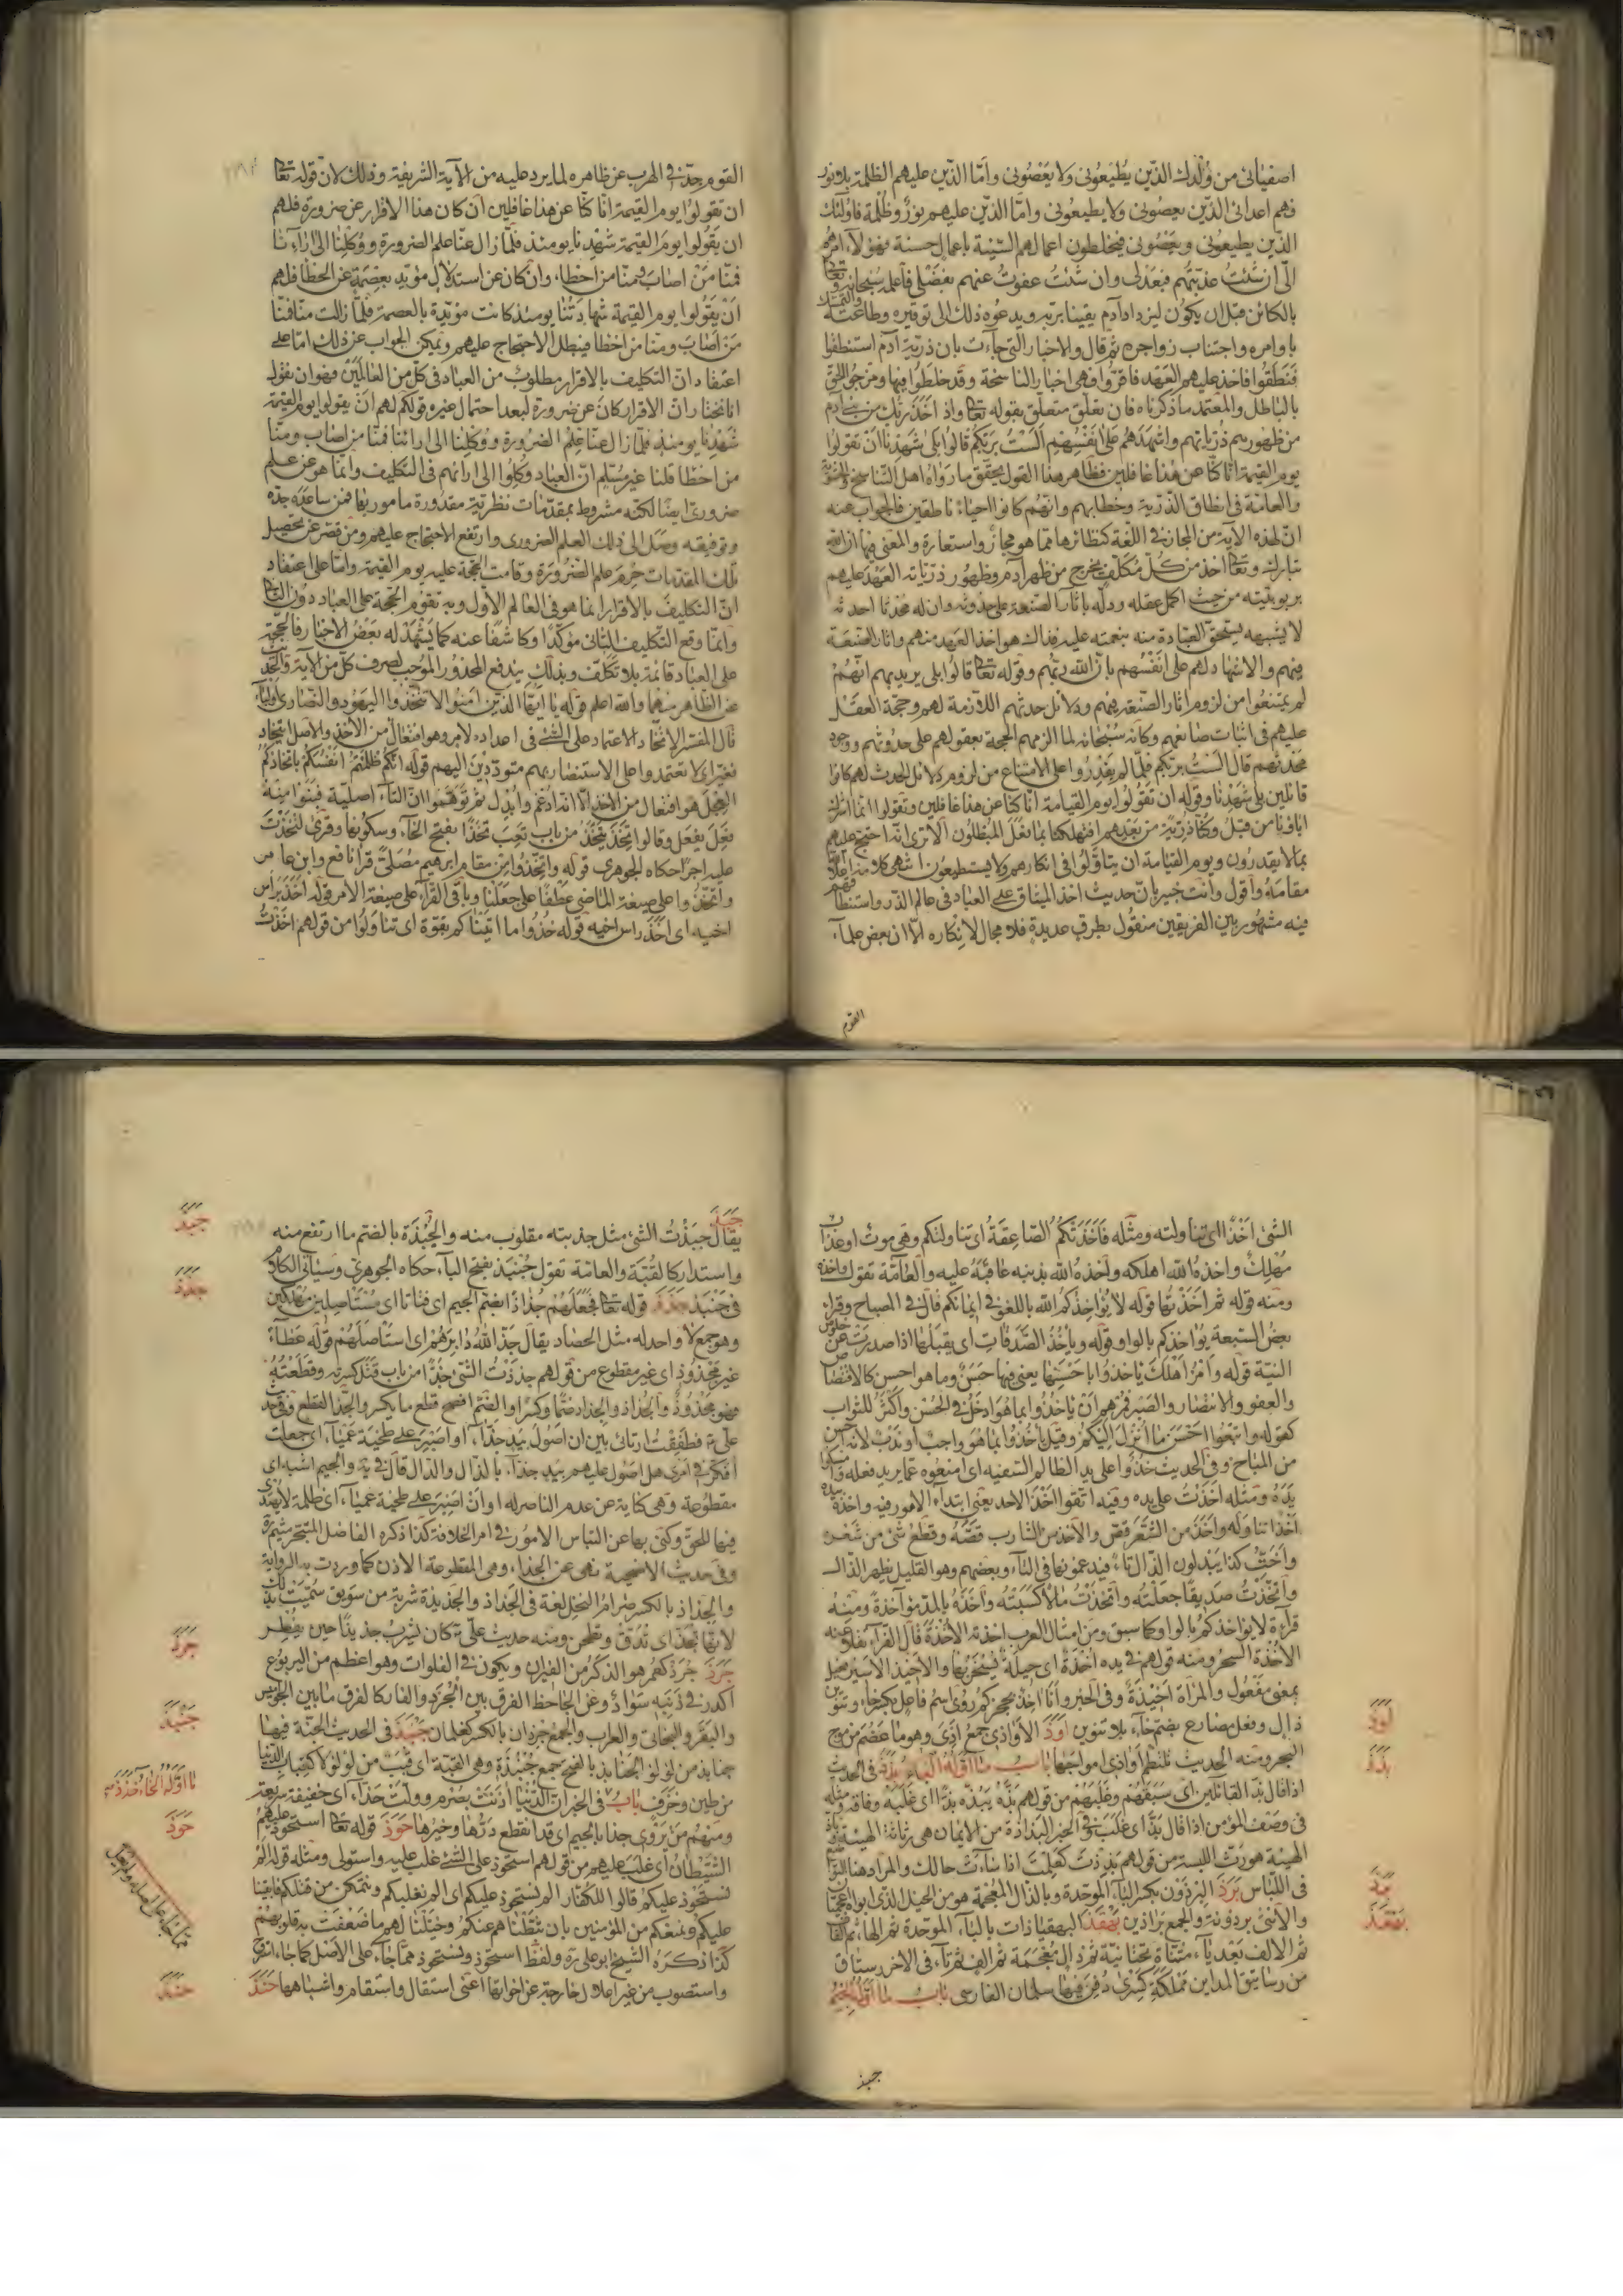 اصفيائى من وُلدك الذّين يُطيعُونى ولا يَعْصُونى وامّا الذّين عليهم الظلمة بلا نور
فهم اعدائى الذّين يعصُونى ولا يطيعُونى وامّا الذّين عليهم نورٌ وظُلمة فاولئك
الذّين يطيعُونى ويَعْصُونى فيخلطون اعمالهم السّيّئة باعمال حسنة فهؤلاء امرُهُم
الىّ ان شئتُ عذّبتهُم فبعَدلى وان شئتُ عفوتُ عنهم بفَضْلى فاعلمهُ سُبحانه وتعالى
بالكائن قبل ان يكوُن ليزداد آدم يقينا بربّه ويدعوُه ذلك الى توقيره وطاعته والتمسّك
باوامره واجتناب زواجره ثم قال والاخبار التى جاءت بان ذريّة آدم استنطقوا
فَنَطَقُوا فاخذ عليهم العَهد فاقرّوا فهى اخبار الناسخة وقد خلَطُوا فيها ومزجوا الحَقّ
بالبَاطل والمعتمد ما ذكرناه فان تعلّق متعلّق بقوله تعالى واذ اَخَذَ رَبُّكَ مِن بَنى ادم
من ظهورهم ذُرّيّاتهم واَشْهَدَهُم عَلى اَنْفُسِهِم اَلَسْتُ بِرَبّكُم قالُوا بَلى شَهِدْنا اَنْ تَقُولوُا
يوم القيمة انّا كنّا عن هذا غافلين فظاهر هذا القول يحقّق ما رَوَاهُ اهل التّناسخ والحشويّة
والعامّة فى انطاق الذّرّيّة وخطابهم وانّهُم كانوا احياءً ناطقين فالجواب عنه
انّ لهذه الآية من المجاز فى اللّغة كنظائرها ممّا هو مجازٌ واستعارة والمعنى فيها انّ الله
تبارك وتعالى اخذ من كُلّ مُكَلّف يخرج من ظهر آدم وظهور ذرّيّاته العَهْد عليهم
بربوبيّته من حيث اكمل عقله ودلّه باثار الصّنعة على حدُوثه وان له محْدثا احدثه
لا يشبهه يستحقّ العبادة منه بنعمته عليه فذلك هو اخذ العَهد منهم واثار الصّنعَة
فيهم والاشهاد لهم على انفُسِهم بانّ الله ربّهم وقوله تعالى قالُوا بلى يريد بهم انّهُمْ
لم يمتنعُوا من لزوم اثار الصّنعة فيهم ودلائل حدثهم اللّازمة لهم وحجّة العقل
عليهم فى اثبات صانعهم وكانّه سُبْحَانه لما الزمهم الحجة بعقولهم على حدُوثهم ووجود
محدثهم قال اَلَسْتُ بربّكم فلمّا لم يقدِرُوا على الامتناع من لزوم دلائل الحدث لهم كانُوا
قائلين بلى شَهِدْنا وقوله ان تَقُولُوا يوم القيامة انّا كنّا عن هذا غافلين او تقولوا انّما اشرك
اباؤنا من قَبلُ وكنّا ذُرّيّة من بَعْدِهم افتهلكنا بما فعل المُبْطِلُون الا ترى انّه احتجّ عليهم
بما لا يقدرُون ويوم القيامة ان يتاَوّلُوا فى انكارهم ولا يستطيعُون
مقامهُ واقول وانت خبيرٌ بان حديث اخذ الميثاق على العباد فى عالم الذّر واستنطاقهم
فيه مشهُور بين الفريقين منقُول بطرق عديدة فلا مجال لانكاره الّا ان بعض علماء
القوم
القوم جدّ فى الهرب عن ظاهره لما يرد عليه من الآية الشريفة وذلك لانّ قوله تعالى
ان تقولُوا يوم القيمة انّا كنّا عن هذا غافلين ان كان هذا الاقرار عن ضرورة فلهم
ان يَقُولوا يوم القيمة شهِدنا يومئذ فلمّا زال عنّا علم الضرورة ووُكِلنا الى ارائنا
فمنّا مَنْ اصَابَ ومنّا من اخطأ، وان كان عن استدلال مؤيّد بعِصْمَة عن الخطأ فلهم
اَنْ يَقُولوا يوم القيمة شهادَتُنا يومئذ كانت مؤيّدة بالعصمة فلمّا زالت منّا فمنّا
مَن اصَابَ ومنّا من اخطأ فيبطل الاحتجاج عليهم ويمكن الجواب عن ذلك امّا على
اعتقاد انّ التكليف بالاقرار مطلوبٌ من العباد فى كلّ من العَالَمَيْن فهو ان نقول
انّا نختار انّ الاقرار كانَ عن ضرورة لبُعد احتمال غيره قولكم لهم ان يقولوا يوم القيمة
شَهِدْنا يومئذ فلمّا زال عنّا عِلْمُ الضرورة ووُكِلنا الى ارائنا فمنّا من اصاب ومنّا
من اخطأ قلنا غير مُسَلّم انّ العباد وُكِلوا الى ارائهم فى التكليف وانما هو عن علم
ضرورىّ ايضا لكنّه مشروط بمقدّمات نظريّة مقدُورة مامور بها فمن ساعده جدّه
وتوفيقه وصَل الى ذلك العلم الضرورى وارتفع الاحتجاج عليهم ومن قصر عن تحصيل
تلك المقدمات حُرِمَ علم الضّرُورَة وقامت الحجّة عليه يوم القيمة وامّا على اعتقاد
انّ التكليفَ بالاقرار انما هو فى العالم الاول وبه تقوم الحجّة على العباد دون الثانى
وانّما وقع التّكليف الثانى مؤكّدا وكاشفا عنه كما يَشْهَدْ له بَعْضُ الاخبار فالحجّة
على العباد قائمة بلا تكلّف وبذلك يندفع المحذُور المُوجب لصرف كلّ من الآية والحديث
عن الظّاهر منهما والله اعلم قوله يا اَيّها الذّين امَنُوا لا تتّخذُوا اليهُود والنّصارى اَولياء
قال المفسّر الاتخاذ الاعتماد على الشئ فى اعداده لامر وهو افتعال من الاخذ والاصل ائتخاذ
فغيّر اى لا تعتمدوا على الاستنصار بهم متودّدِيْنَ اليهم قوله انّكُمْ ظَلَمْتُم اَنْفُسَكُمْ باتّخاذكُم
العِجْلَ هو افتعال من الاخذ الّا انّه ادُغم واُبْدل ثم تَوَهّمُوا انّ التّاء اصليّة فبَنُوا مِنهُ
فَعِلَ يفعَل وقالوا تَخِذ يَتْخَذُ من باب تَعِبَ تَخَذًا بفتح الخآء وسكُونها وقرئ لَتَخِذْتَ
عليه اجرًا حكاه الجوهرى قوله واتّخِذُوا من مقام ابرهيم مُصَلّى قرأ نافع وابن عامر
واتّخَذُوا على صيغة الماضى عَطفًا على جَعَلْنا وباقى القرّاء على صيغة الامر قوله اَخَذ برَأس
اخيه اى اَخَذَ راس اخيه قوله خُذُوا ما اتَيْنَاكم بقوّة اى تناوَلُوا من قولهم اَخَذْتُ
الشّئ اَخْذًا اى تناولته ومثله فَاَخَذَتْكُمُ الصّاعِقَةُ اى تناولتكم وهى موت او عذاب
مُهْلِكٌ واخذهُ الله اهلكه واَخذهُ الله بذنبه عاقبهُ عليه والعَامّة تقول واخذه
ومنه قوله ثم اَخَذتُها قوله لا يُؤاخِذُكُم الله باللّغو فى ايمانكم قال فى المصباح وقرأ
بعض السّبعة يُواخذكم بالواو وقوله ويأخُذُ الصّدقاتِ اى يقبلها اذا صدرت عن خلوص
النيّة قوله وأْمُرْ اَهْلَكَ ياخذُوا باَحْسَنِها يعنى فيها حَسَنٌ وما هو احسن كالاقتصاص
والعفو والانتصار والصّبر فمُرْهم اَنْ يَاخُذُوا بما هُوَ ادخَلُ فى الحُسْن واَكْثَرُ للثّواب
كقوله واتّبَعُوا اَحْسَنَ ما اُنْزِلَ اليْكُمْ وقيل يأخُذوا بما هو واجبٌ او ندبٌ لانّه احسن
من المباح وفى الحديث خُذُوا على يد الظالم السّفيه اى امنعُوه عما يريد فعله وامسكوا
يَدَهُ ومثله اخذتُ على يده وفيه اتّقوا اخْذ الاحد يعنى ابتداء الامور فيه واخذه بيده
اَخْذًا تناوله واَخَذَ من الشّعَر قَصّ والآخذ من الشارب قَصّهُ وقطْعُ شئ من شَعْره
واَخَتُّ كذا يُبْدلون الذّال تاءً فيدغمونها فى التاء وبعضهم وهو القليل يظهر الذّال
واتّخَذْتُ صديقًا جَعلْتُه واتّخذْتُ مالًا كَسَبْتُه وآخَذَهُ بالمدّ مؤآخذةً ومنه
قراءة لا يواخذكُم بالواو كما سبق ومن امثال العرب اخذته الاُخذةُ قال الفراء نقلا عنه
الاُخذَة السّحر ومنه قولهم فى يده اُخذَة اى حيلة يُسْحَرُ بها والاخيذ الاسير فعيل
بمعنى مفعُول والمراة اَخِيْذَةٌ وفى الخبر
ذال وفعل مضارع بضم خآء بلا تنوين اَوَذَ الاَواذى جمع اذىّ وهو ما عظم من موج
البحر ومنه الحديث تلتطم اَواذىّ امواجها بابُ ما اوّله الباء بَذَذَ فى الحديث
اذا قال بذّ القائلين اى سَبَقَهُم وغَلَبَهُم من قولهم بَذّهُ يَبُذّه بذّا اى غَلَبَهُ وفاقه ومثله
فى وصف المؤمن اذا قال بَذّ اى غلب وفى الخبر البَذاذة من الايمان هى رثاثة الهيئة
الهيئة هو رَثُّ اللّبسة من قولهم بَذِذْتَ كعَلِمْتَ اذا ساءَت حالك والمراد هنا التواضع
فى اللّباس بَرَذَ البِرْذَوْن بكسر الباء الموحّدة وبالذال المعجمة هو من الخيل الذى ابواه اعجميّان
والانثى برذونة والجمع بَراذين بَهْقَذَ البهقباذات بالباء الموحّدة ثم الهاء ثم القاف
ثم الالف بَعْد ياء مثنّاة تحتانية ثم ذال مُعْجَمَة ثم الف ثم تاء فى الاخر رستاق
من رساتيق المداين مَملكة كِسْرى دُفِنَ فيها سلمان الفارسى بابُ ما اوّله الجيْم
اوذ
بذذ
بهقذ
جبذ
جَبَذَ
يقال جَبَذْتُ الشئ مثل جذبته مقلوب منه والجُنْبُذَة بالضّم ما ارتفع منه
واستدار كالقُبّة والعامّة تقول جُنْبَذ بفتح الباء حكاه الجوهرى وسياتى الكلام
فى جَنبَذَ جَذَذَ قوله تعالى فجَعَلَهُم جُذاذًا بضَمّ الجيم اى فتاتا اى مُسْتَاصلين مهلكين
وهو جمع لا واحد له مثل الحصاد يقال جَذّ اللهُ دابرهُم اى استاصَلَهُم قوله عَطاءً
غير مَجْذُوذ اى غير مقطوع من قولهم جذذْتُ الشئ جذّا من باب قَتَل كسرته وقَطَعْتُهُ
فهو مَجْذُوذ والجُذاذ والجِذاذ ضمًّا وكسرًا والضّم افصح قطع ما يكسر والجَذّ القطع وفى حديث
علىّ ع فطَفِقتُ ارتائ بين ان اَصُولَ بيَدٍ جذّاء، او اصْبِرَ على طخيَة عَمْيَاء، اى جَعلتُ
افكّرُ فى امرى هل اصُول عليهم بيدٍ جذاء بالدال والذال قال فى يه والجيم اشبه اى
مقطوعة وهى كناية عن عدم الناصر له او انْ اصْبِرَ على طخيَة عمياء، اى ظلمة لا يهتدى
فيها للحق وكنّى بها عن التباس الامور فى امر الخلافة كذا ذكره الفاضل المتبحّر ميثم ره
وفى حديث الاضحية نهى عن الجذاء، وهى المقطوعة الاذن كما وردت به الرواية
والجِذاذ بالكسر صرام النخل لغة فى الجَذاذ والجذيذة شربة من سَوِيق سُمّيَت بذلك
لانّها تُجَذّ اى تُدَقّ وتطحن ومنه حديث علىّ ع كان يشربُ جذيذًا حين يفطر
جَرَذَ جُرَذ كعُمَر هو الذكر من الفيران ويكون فى الفلوات وهو اعظم من اليربوع
اكدر فى ذَنَبِه سَوادٌ وعن الجاحظ الفرق بين الجُرَذ والفار كالفرق ما بين الجواميس
والبَقَر والبخاتى والعراب والجمع جِرْذان بالكسر كغلمان جَنْبَذَ فى الحديث الجنّة فيها
جنابذ من لؤلؤ الجنابذ بالفتح جمع جُنْبُذَة وهى القبّة اى قبب من لؤلؤ لا كقباب الدّنيا
من طين وخزف بابٌ فى الخبر انّ الدّنيا اذنَتْ بصُرْم وولّت حَذّاء، اى خفيفة سريعة
ومنهم مَنْ يَرْوِى جذاء بالجيم اى قد انقطع دَرُّها وخيرها حَوَذَ قوله تعالى استَحْوَذ عليهم
الشيطان اى غلبَ عليهم من قولهم استحوذ على الشئ غلب عليه واستولى ومثله قوله اَلمْ
نستَحْوذ عليكم قالوا للكفّار الم نستحوذ عليكم اى الم نغلبكم ونتمكن من قتلكم فابقينا
عليكم ونمنعكم من المؤمنين بان ثبّطناهم عنكم وخيّلنا لهم ما ضعُفَتْ به قلوبهُمْ
كذا ذكَرهُ الشيخ بوعلى ره ولفظ استحوذ ونستحوذ ممّا جاء على الاصل كما جاء استروح
واستصوب من غير اعلال خارجة عن اخواتها اعنى استقال واستقام واشباهها حَنَذَ
جبذ
جذذ
جرذ
جنبذ
ما اوّله الحاء حذذ
حوذ
ممّا جاء على اصله ولم يعلّ
حنذ